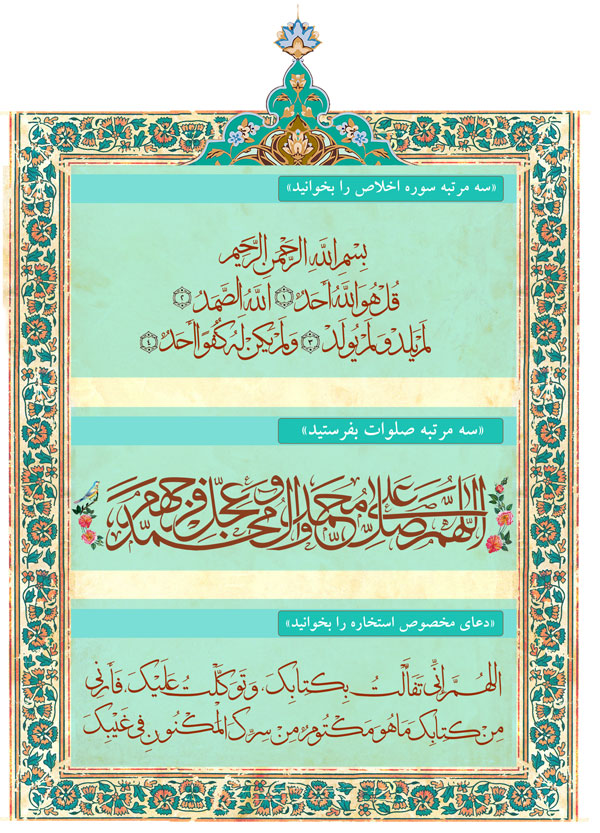 «سه مرتبه سوره اخلاص را بخوانید»
بِسْمِ اللَّهِ الرَّحْمٰنِ الرَّحِيمِ
قُلْ هُوَ اللَّهُ أَحَدٌ ﴿١﴾ اللَّهُ الصَّمَدُ ﴿٢﴾
لَمْ يَلِدْ وَلَمْ يُولَدْ ﴿٣﴾ وَلَمْ يَكُنْ لَهُ كُفُوًا أَحَدٌ ﴿٤﴾
«سه مرتبه صلوات بفرستید»
اللَّهُمَّ صَلِّ عَلَىٰ مُحَمَّدٍ وَآلِ مُحَمَّدٍ وَعَجِّلْ فَرَجَهُمْ
«دعای مخصوص استخاره را بخوانید»
اللهُمَّ إِنِّي تَفَأَّلْتُ بِكِتابِكَ، وَتَوَكَّلْتُ عَلَيْكَ، فَأَرِنِي
مِنْ كِتابِكَ مَا هُوَ مَكْتُومٌ مِنْ سِرِّكَ الْمَكْنُونِ فِي غَيْبِكَ